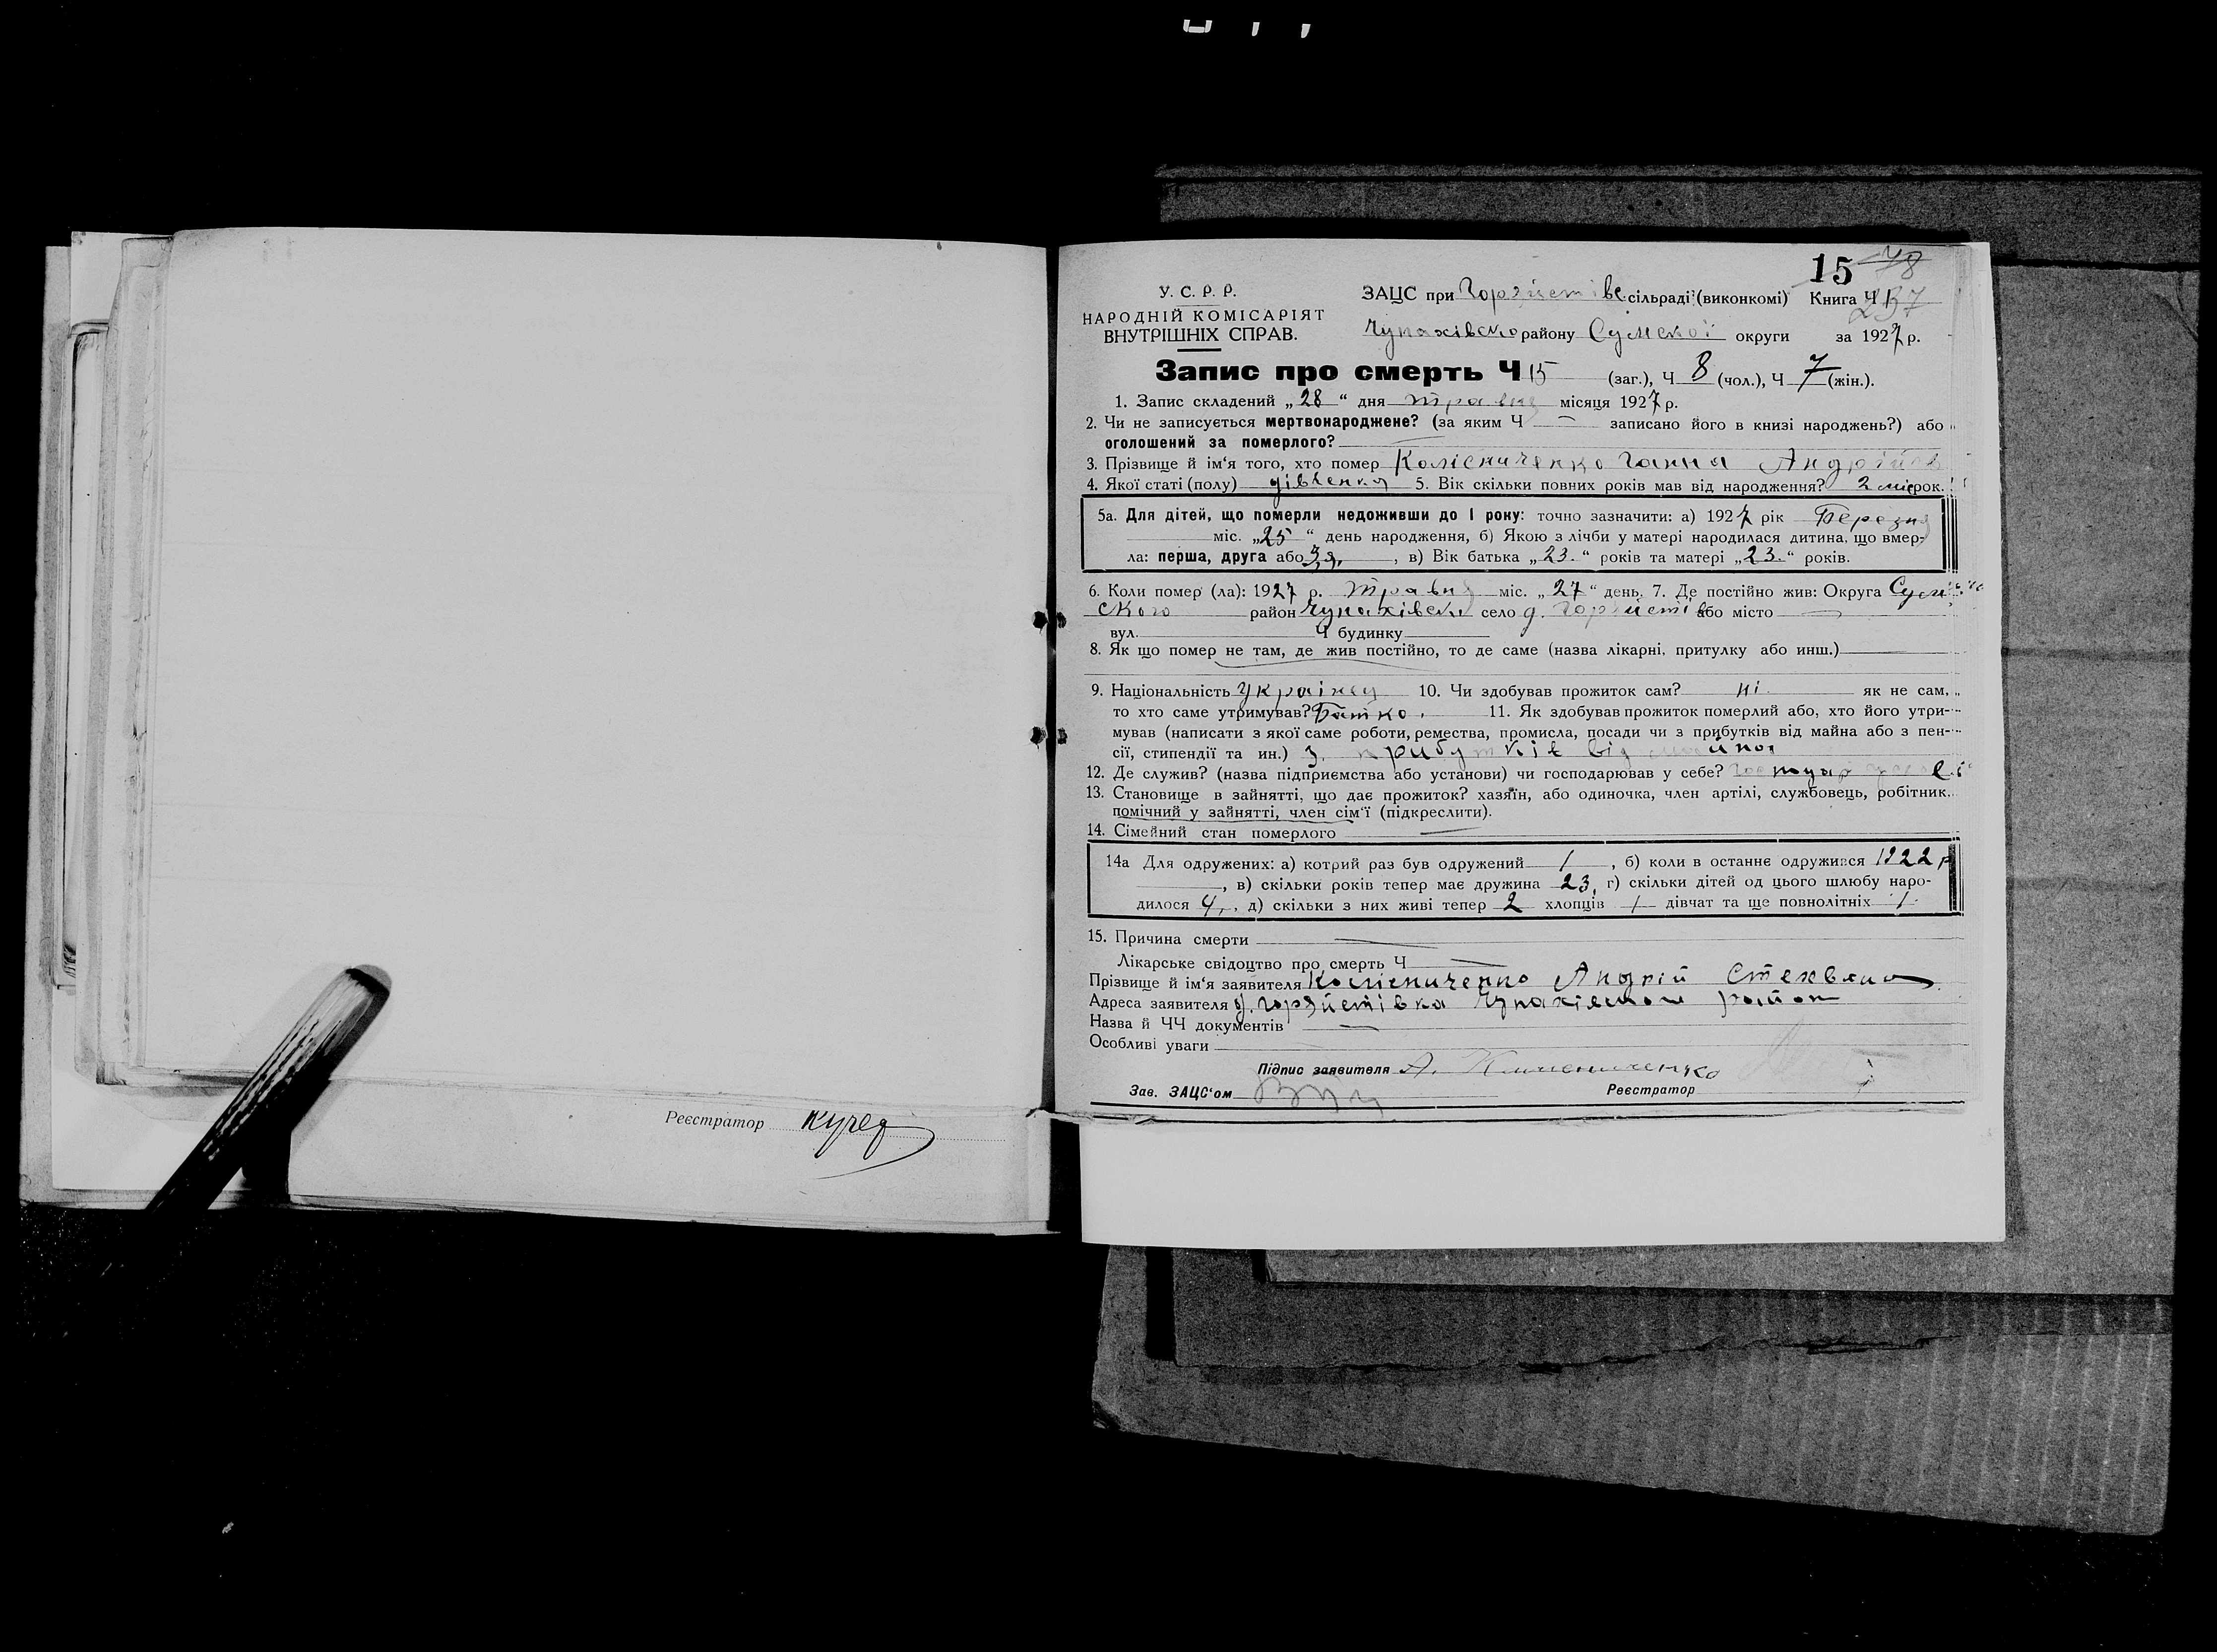 15 78
У. С. Р. Р.
НАРОДНІЙ КОМІСАРІЯТ
ВНУТРІШНІХ СПРАВ.
ЗАЦС при сільраді (виконкомі) Книга Ч
237
Чупахівсько району Сумської округи за 1927 р.
Запис про смерть Ч 15 (заг.), Ч 8 (чол.), Ч 7 (жін.).
1. Запис складений „28“ дня травня місяця 1927 р.
2. Чи не записується мертвонароджене? (за яким Ч — записано його в книзі народжень?) або
оголошений за померлого? —
3. Прізвище й ім‘я того, хто помер Колісниченко Ганна Андріїв
4. Якої статі (полу) дівченка 5. Вік скільки повних років мав від народження? 2 міс рок.
5а. Для дітей, що померли недоживши до 1 року: точно зазначити: а) 1927 рік Березня
міс. „25“ день народження, б) Якою з лічби у матері народилася дитина, що вмер-
ла: перша, друга або 3я, в) Вік батька „23.“ років та матері „23.“ років.
6. Коли помер (ла): 1927 р. травня міс. „27“ день. 7. Де постійно жив: Округа Сум
ского район Чупахівськ село д. або місто —
вул. Ч будинку
8. Як що помер не там, де жив постійно, то де саме (назва лікарні, притулку або инш.)
9. Національність Українец 10. Чи здобував прожиток сам? ні як не сам,
то хто саме утримував? Батко. 11. Як здобував прожиток померлий або, хто його утри-
мував (написати з якої саме роботи, ремества, промисла, посади чи з прибутків від майна або з пен-
сії, стипендії та ин.) з прибутків від майна
12. Де служив? (назва підприємства або установи) чи господарював у себе?
13. Становище в зайнятті, що дає прожиток? хазяїн, або одиночка, член артілі, службовець, робітник.
помічний у зайнятті, член сім‘ї (підкреслити).
14. Сімейний стан померлого —
14а Для одружених: а) котрий раз був одружений 1, б) коли в останнє одружився 1922 р
, в) скільки років тепер має дружина 23, г) скільки дітей од цього шлюбу наро-
дилося 4, д) скільки з них живі тепер 2 хлопців 1 дівчат та ще повнолітніх 1.
15. Причина смерти —
Лікарське свідоцтво про смерть Ч —
Прізвище й ім‘я заявителя Колісниченко Андрій
Адреса заявителя д. Горяйстівка район
Назва й ЧЧ документів —
Особливі уваги
Підпис заявителя А. Колісниченко
Зав. ЗАЦС‘ом Реєстратор
Реєстратор